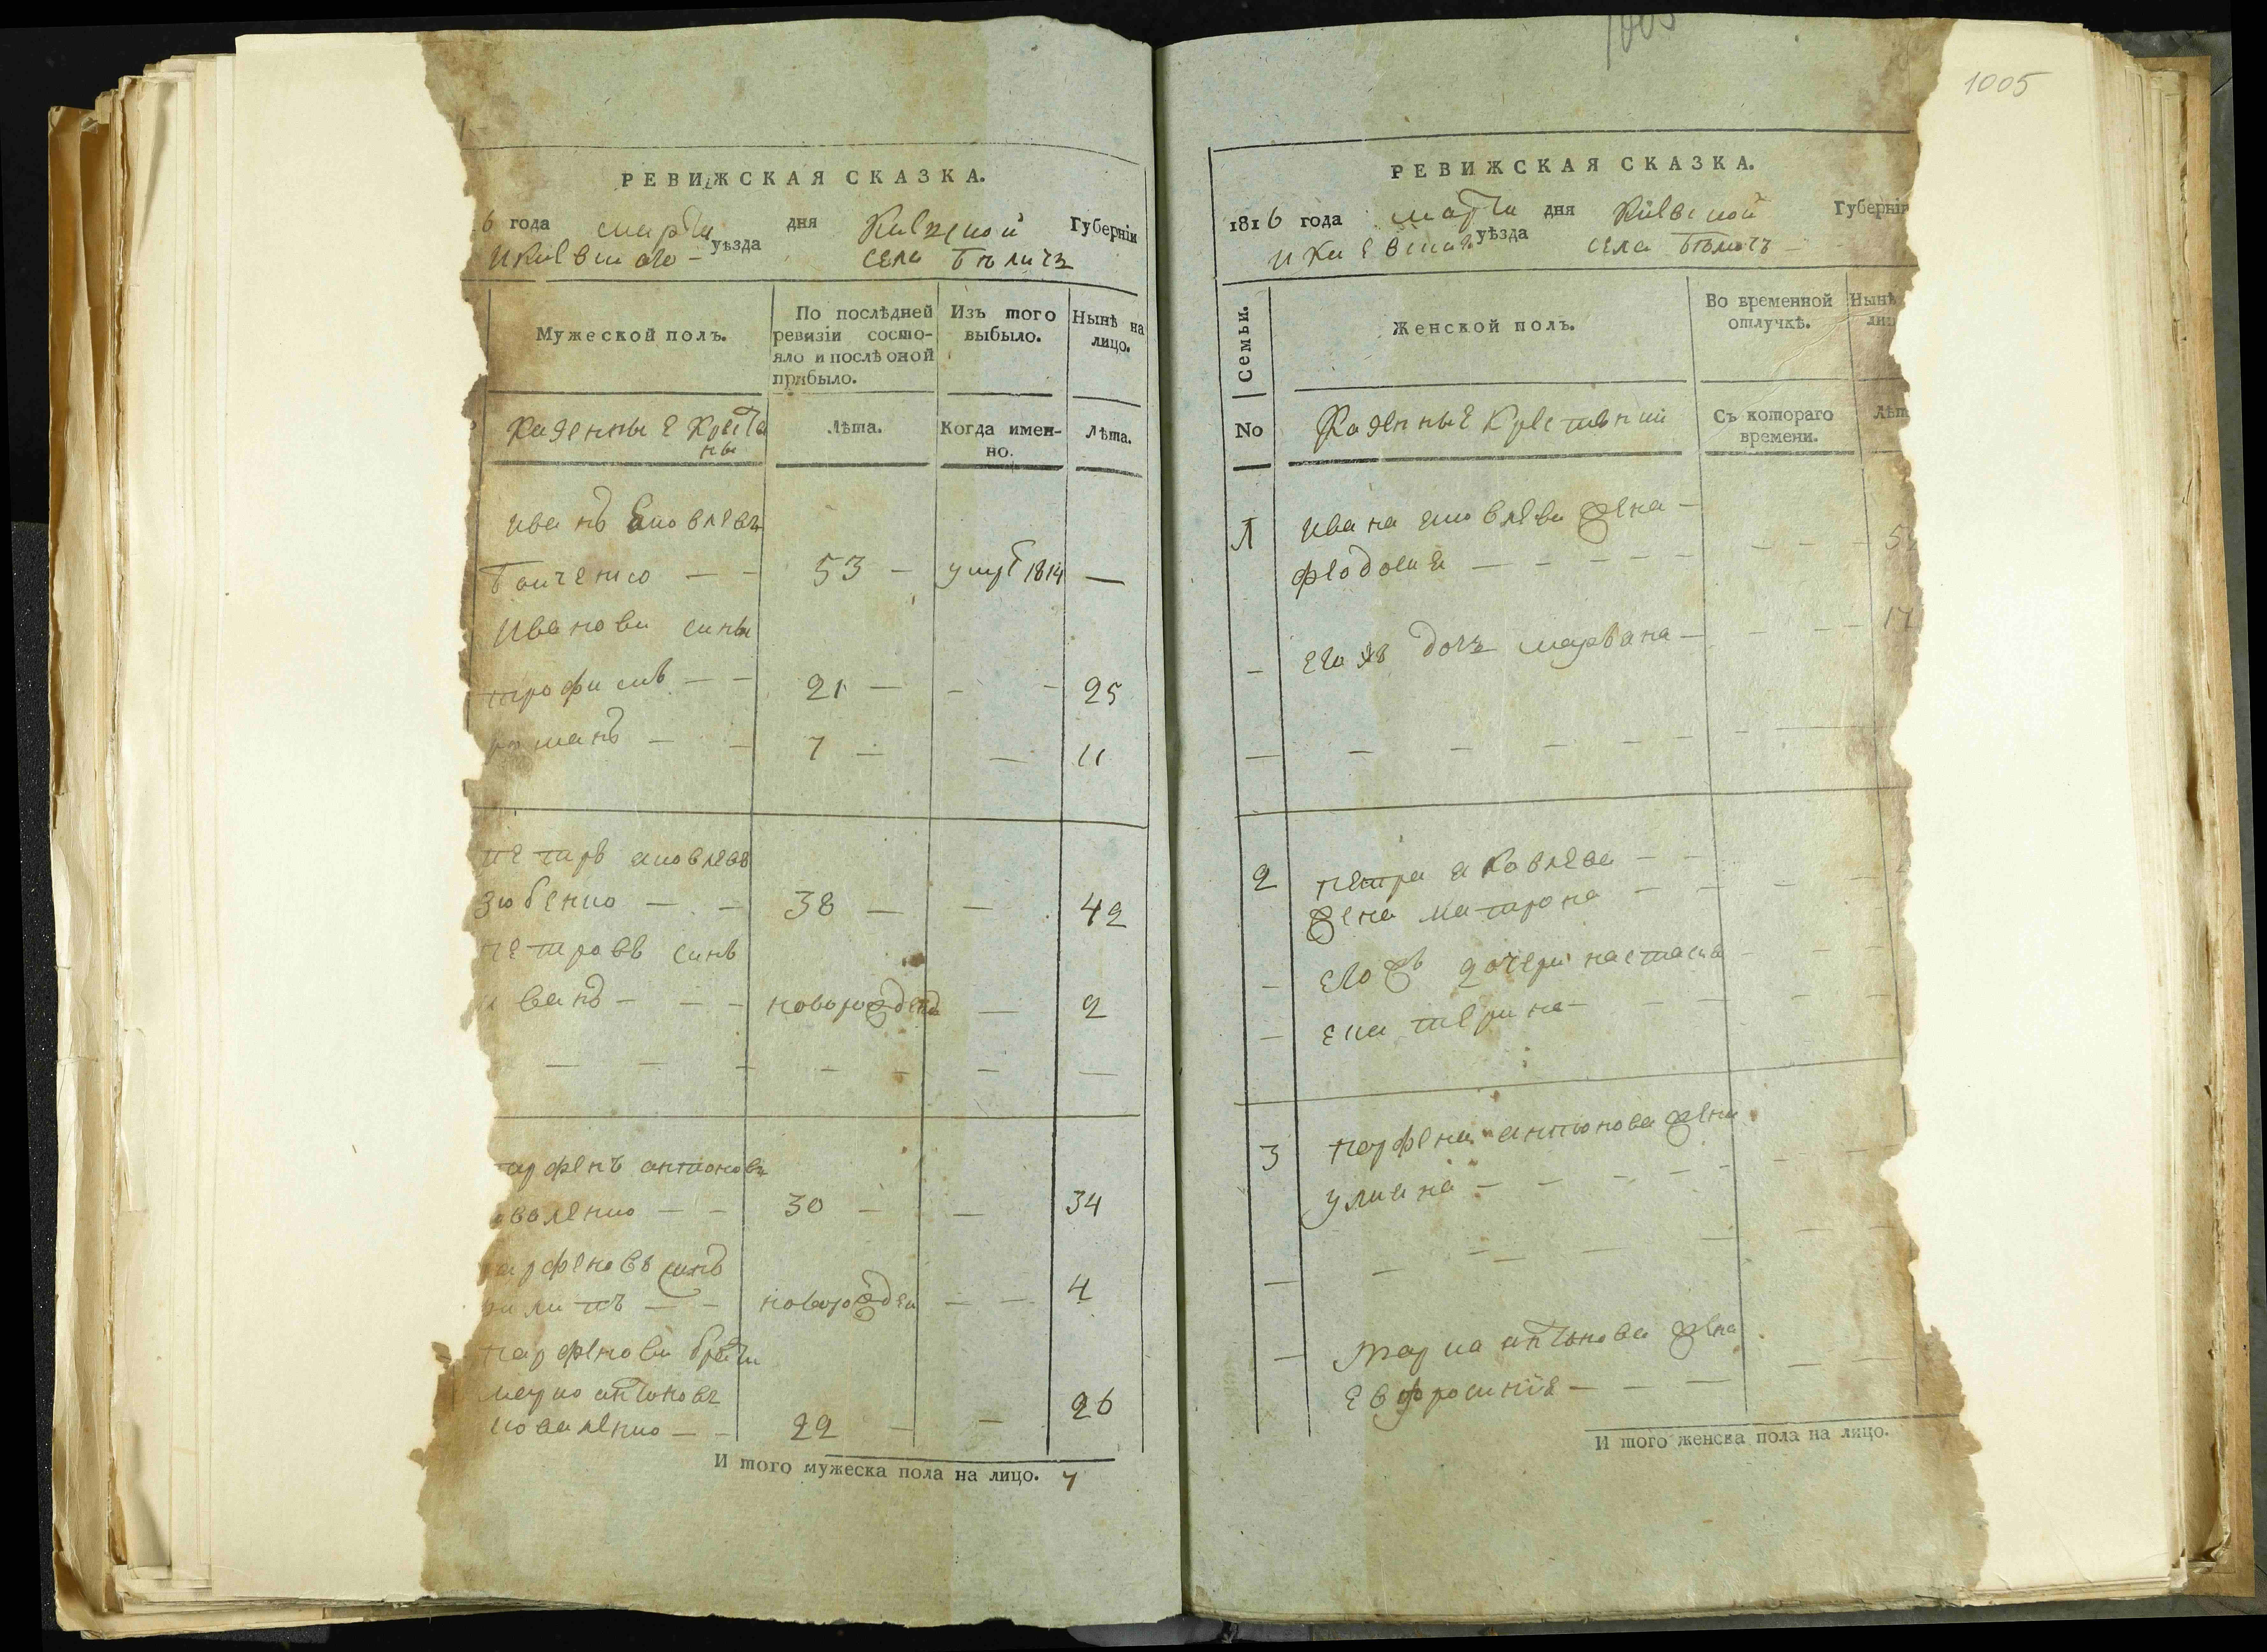 1005
1005
РЕВИЖСКАЯ СКАЗКА.
6 года марта дня Киевской Губерніи
и Киевского уѣзда села Бѣличъ
Мужеской полъ.
По послѣдней ревизіи состо-
яло и послѣ оной
прибыло.
Изъ того
выбыло.
Нынѣ на
лицо.
Казенные Крестя
ны
Лѣта.
Когда имен-
но.
Лѣта.
Иванъ Яковлевъ
53 — умрт 1814 —
Иванови сины
трофимъ — — 21 — — — 25
романъ — — 7 — — 11
петръ яковлевъ
зюбенко — — 38 — — 42
петровъ синъ
иванъ — — — новорожденъ — 2
— — — — — — —
арфенъ антоновъ
оваленко — — 30 — — 34
арфеновъ синъ
илипъ — — новорожден — — 4
парфенови братя
марко антоновъ
коваленко — — 22 — — 26
И того мужеска пола на лицо. 7
РЕВИЖСКАЯ СКАЗКА.
1816 года марта дня Киевской Губерніи
и Киевского уѣзда села Бѣличъ —
Семьи.
Женской полъ.
Во временной
отлучкѣ.
Нынѣ
лиц
No
Казенные Крестянки
Съ котораго
времени.
Лѣт
1 Ивана яковлева жена —
феодосия — — — — — — — — 5
— его жъ дочъ марьана — — — — 17
— — — — — — — —
2 петра яковлева — —
жена матрона — — — —
— его жъ дочери настасия — — —
— екатерина — — — — —
3 парфена антонова жена
улиана — — — — — —
— — — — — — — —
— марка антонова жена
евфросиния — — — — —
И того женска пола на лицо.